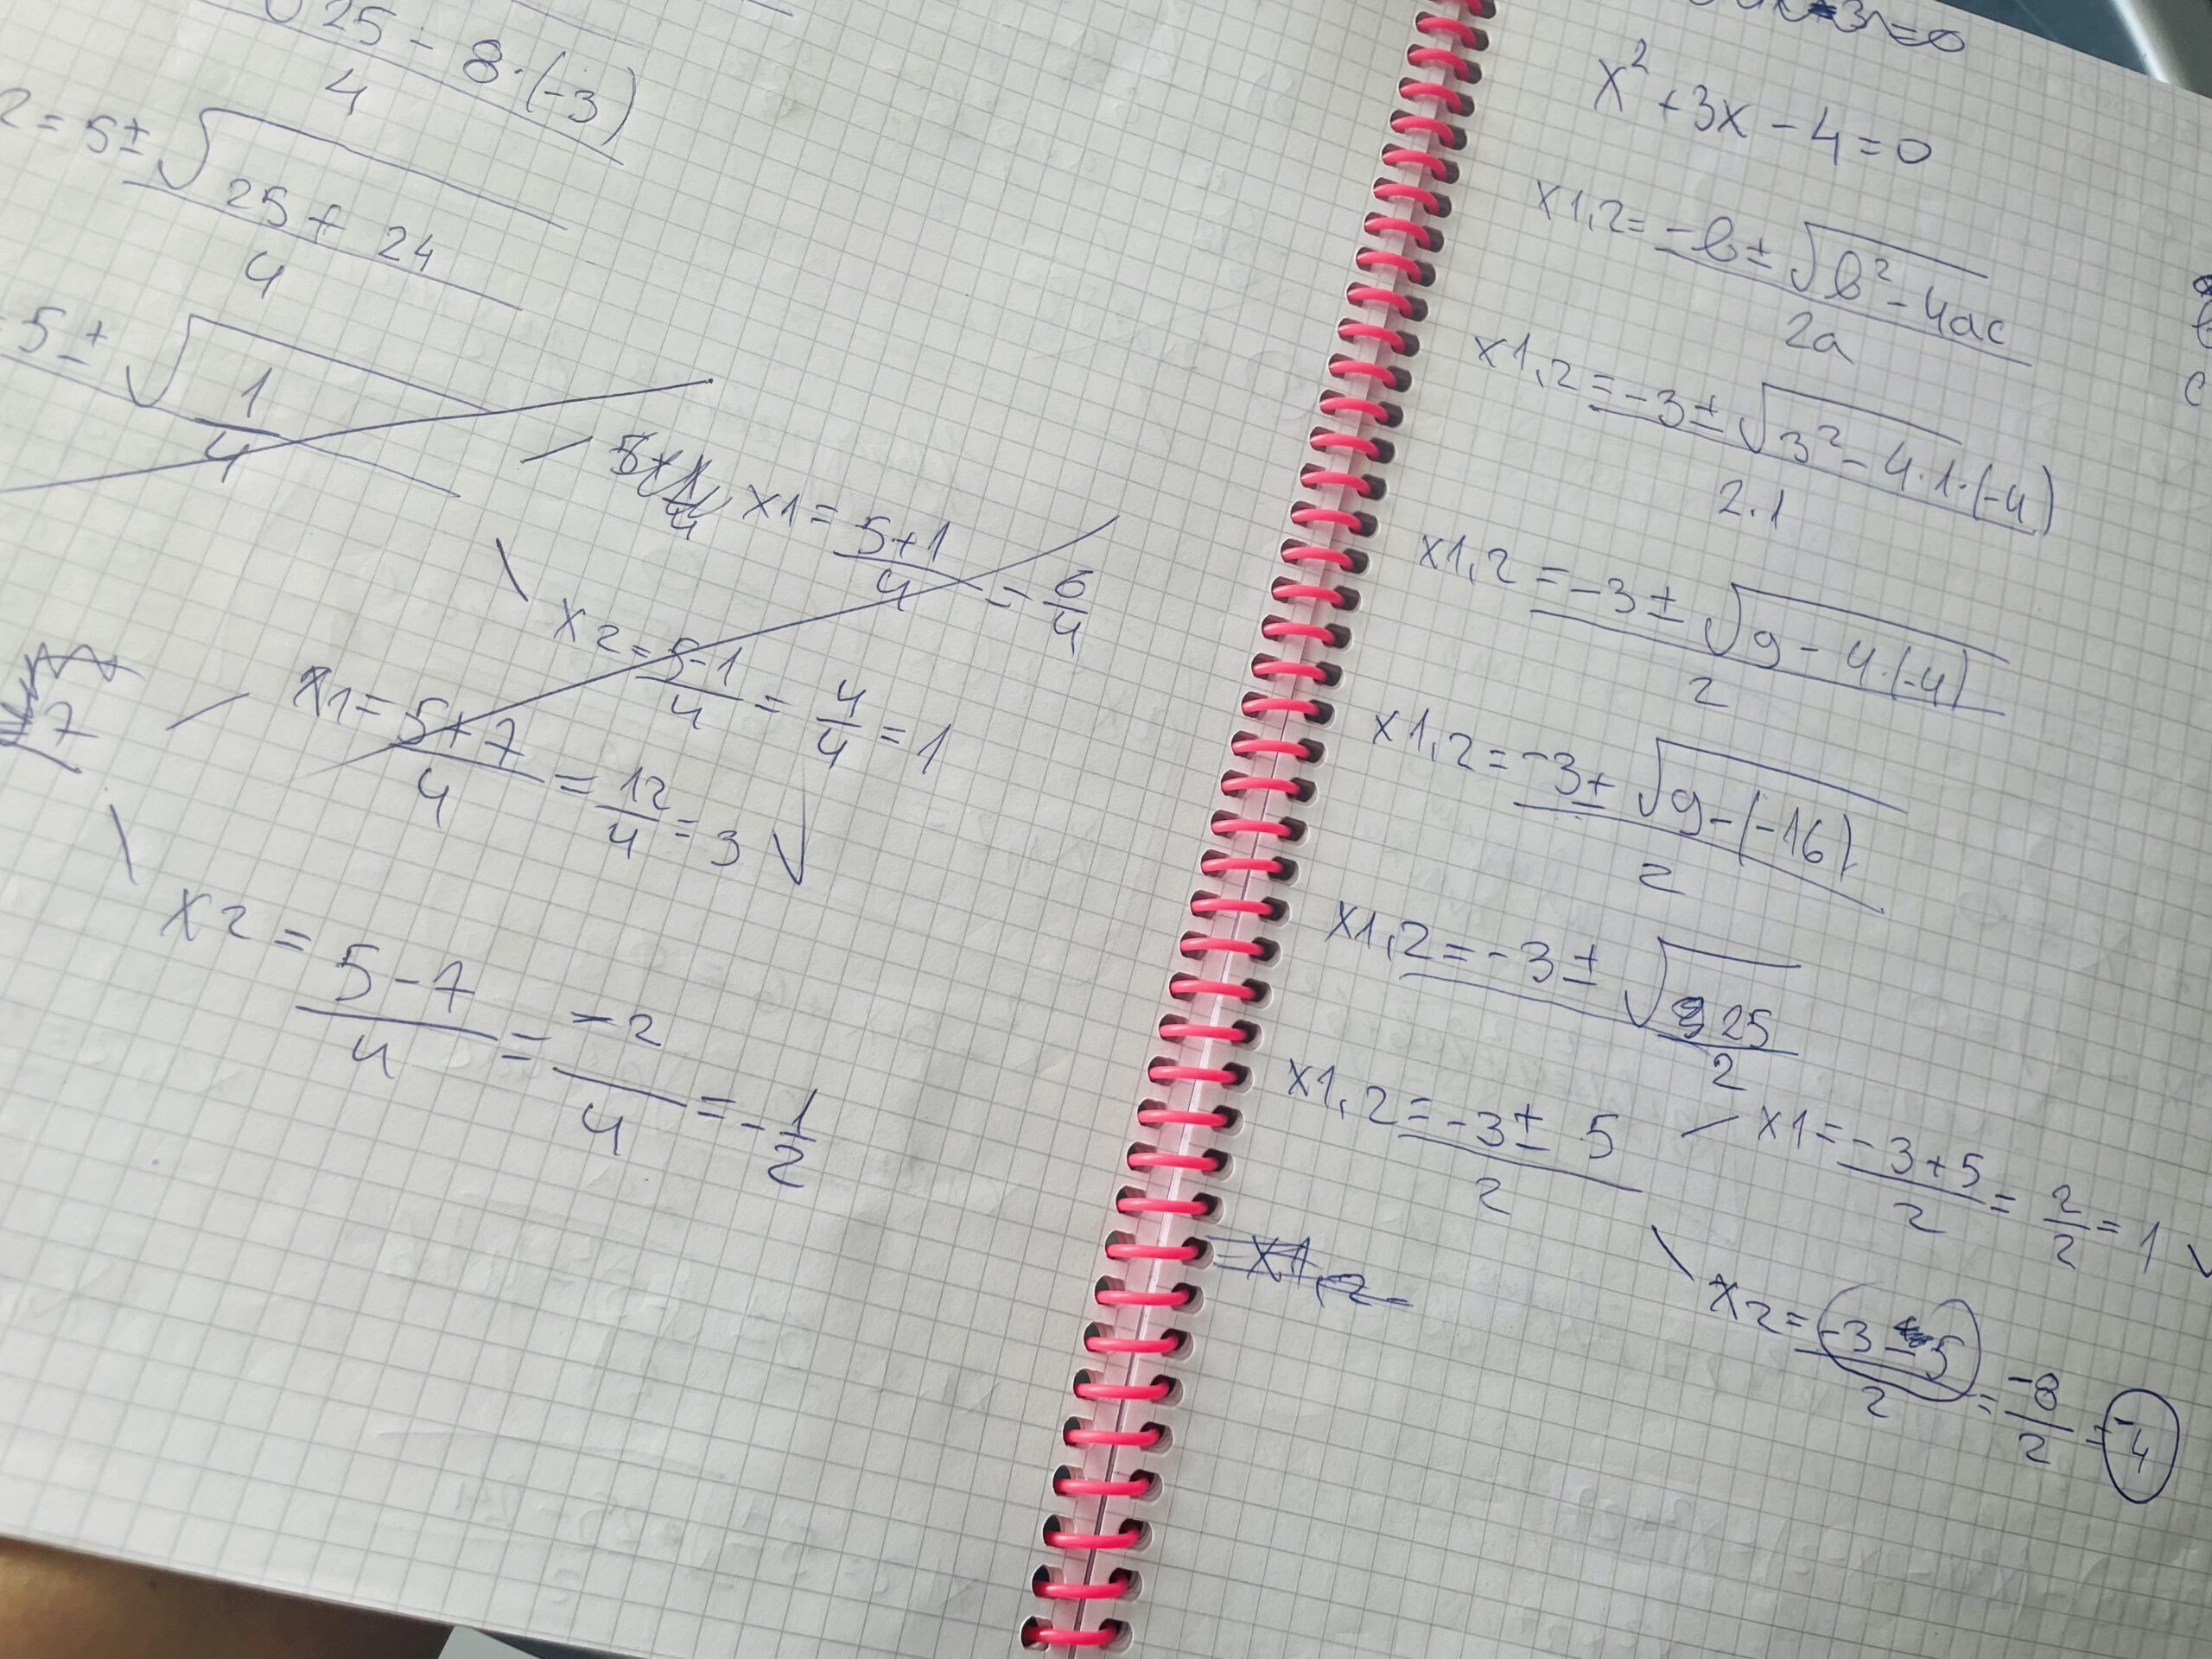 √25 - 8·(-3)
4
2 = 5 ± √25 + 24
4
= 5 ± √1
4
x1 = 5+1 / 4 = 6/4
x2 = 5-1 / 4 = 4/4 = 1
7
x1 = 5+7 / 4 = 12/4 = 3 √
x2 = 5-7 / 4 = -2 / 4 = -1/2
x² + 3x - 4 = 0
x1,2 = -b ± √b² - 4ac
2a
x1,2 = -3 ± √3² - 4·1·(-4)
2·1
x1,2 = -3 ± √9 - 4·(-4)
2
x1,2 = -3 ± √9 - (-16)
2
x1,2 = -3 ± √25
2
x1,2 = -3 ± 5
2
x1 = -3+5 / 2 = 2/2 = 1 √
x1,2 =
x2 = -3 - 5 / 2 = -8/2 = -4